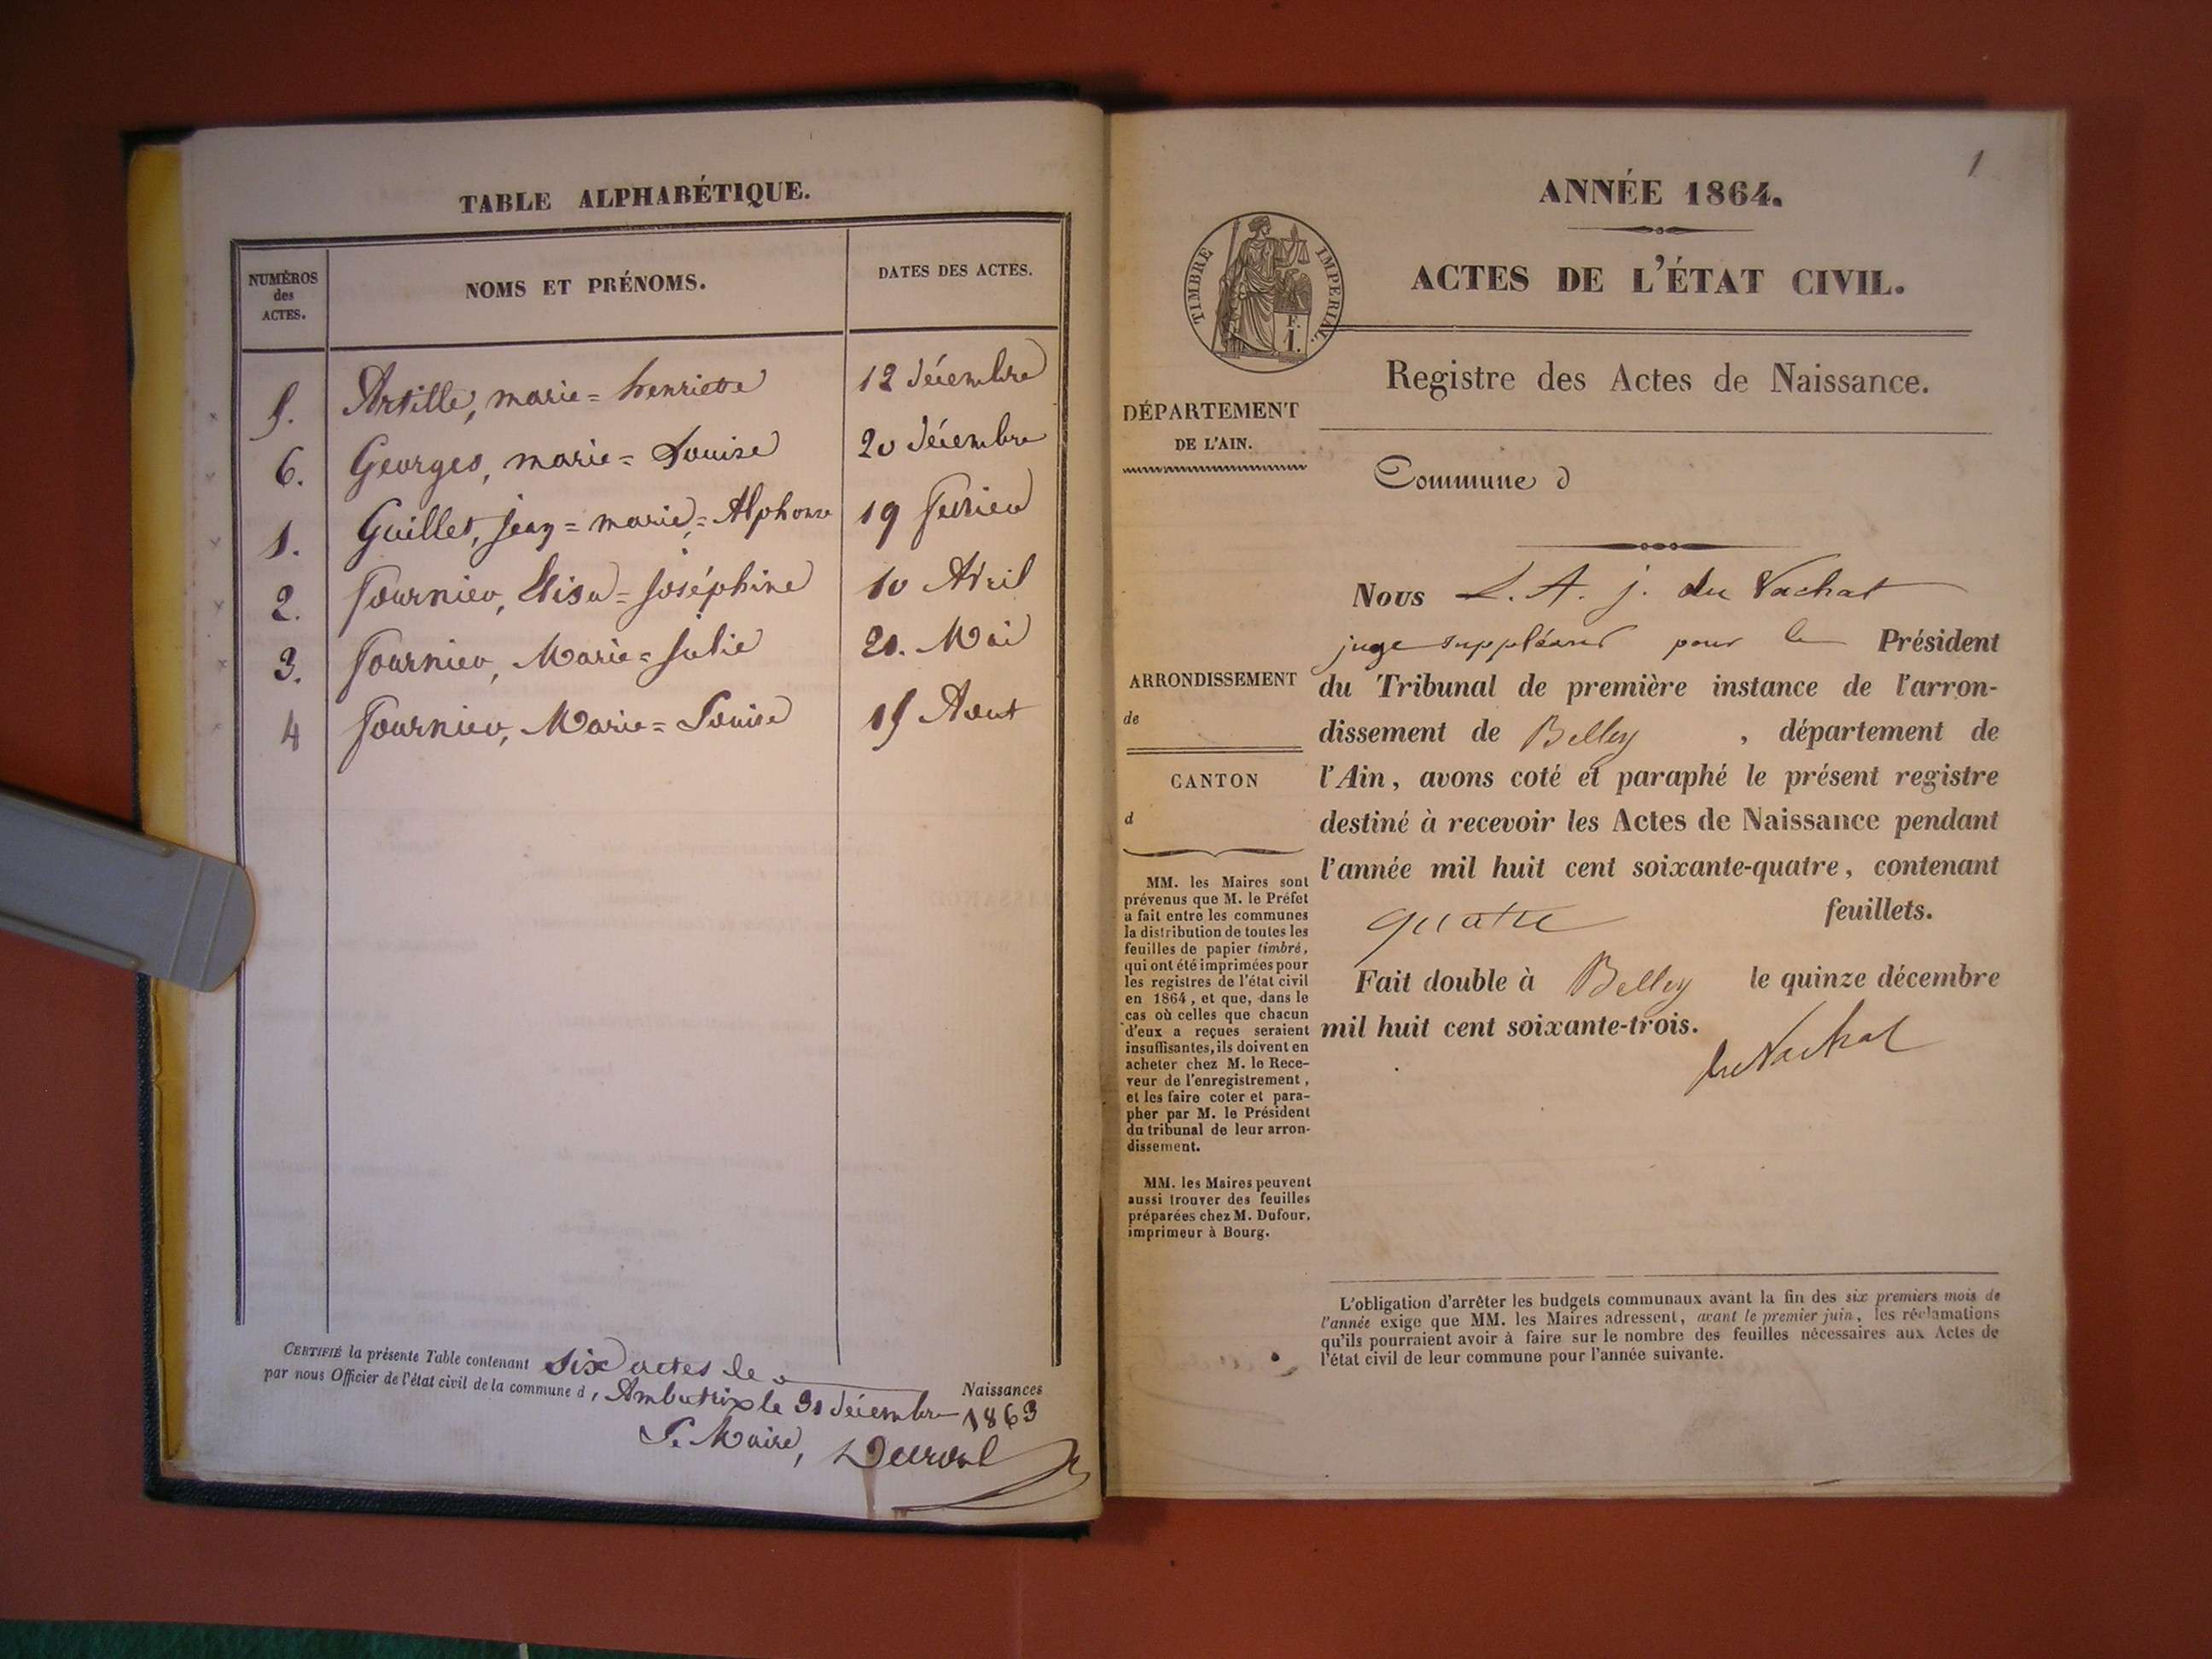 TABLE ALPHABÉTIQUE.
NUMÉROS
des
ACTES.
NOMS ET PRÉNOMS.
DATES DES ACTES.
5. Arsille, marie=henriette 12 décembre
6. Georges, marie=Louise 20 décembre
1. Guillet, Jean=marie=Alphonse 19 fevrier
2. Fournier, Elisa=Joséphine 10 Avril
3. Fournier, Marie=Julie 21. Mai
4 Fournier, Marie=Louise 15 Aout
CERTIFIÉ la présente Table contenant six actes de Naissances
par nous Officier de l'état civil de la commune d'Ambutrix le 31 décembre 1863
Le Maire,
1
ANNÉE 1864.
TIMBRE IMPERIAL.
F.
1.
ACTES DE L'ÉTAT CIVIL.
Registre des Actes de Naissance.
DÉPARTEMENT
DE L'AIN.
Commune d
ARRONDISSEMENT
de
CANTON
d
MM. les Maires sont
prévenus que M. le Préfet
a fait entre les communes
la distribution de toutes les
feuilles de papier timbré,
qui ont été imprimées pour
les registres de l'état civil
en 1864, et que, dans le
cas où celles que chacun
d'eux a reçues seraient
insuffisantes, ils doivent en
acheter chez M. le Rece-
veur de l'enregistrement,
et les faire coter et para-
pher par M. le Président
du tribunal de leur arron-
dissement.
MM. les Maires peuvent
aussi trouver des feuilles
préparées chez M. Dufour,
imprimeur à Bourg.
Nous L. A. J. du Vachat
juge suppléant pour le Président
du Tribunal de première instance de l'arron-
dissement de Belley , département de
l'Ain, avons coté et paraphé le présent registre
destiné à recevoir les Actes de Naissance pendant
l'année mil huit cent soixante-quatre, contenant
quatre feuillets.
Fait double à Belley le quinze décembre
mil huit cent soixante-trois.
du Vachat
L'obligation d'arrêter les budgets communaux avant la fin des six premiers mois de
l'année exige que MM. les Maires adressent, avant le premier juin, les réclamations
qu'ils pourraient avoir à faire sur le nombre des feuilles nécessaires aux Actes de
l'état civil de leur commune pour l'année suivante.